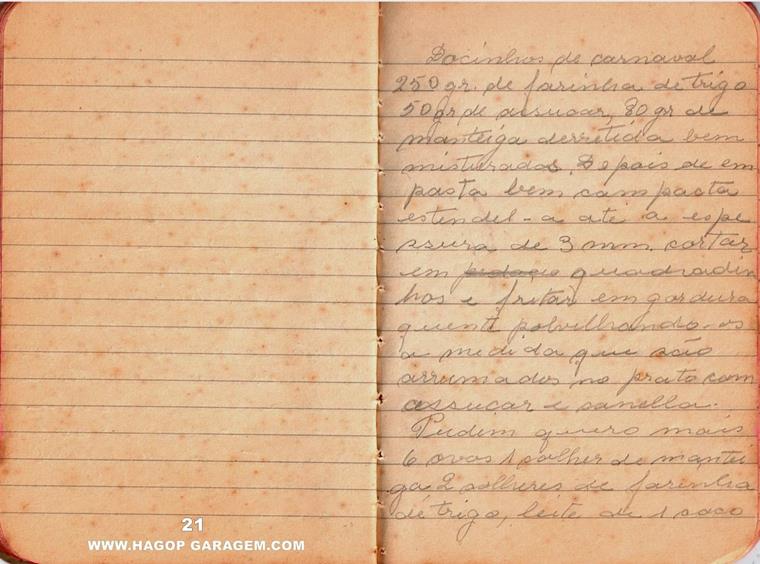 21
WWW.HAGOP GARAGEM.COM
Docinhos de carnaval
250 gr. de farinha de trigo
50 gr de assucar, 80 gr de
manteiga derretida bem
misturados. Depois de em
pasta bem compacta
estendel-a até a espe
ssura de 3 mm. cortar
em quadradin
hos e fritar em gordura
quente polvilhando-os
a medida que são
arrumados no prato com
assucar e canella.
Pudim quero mais
6 ovos 1 colher de mantei
ga 2 colheres de farinha
de trigo, leite de 1 coco